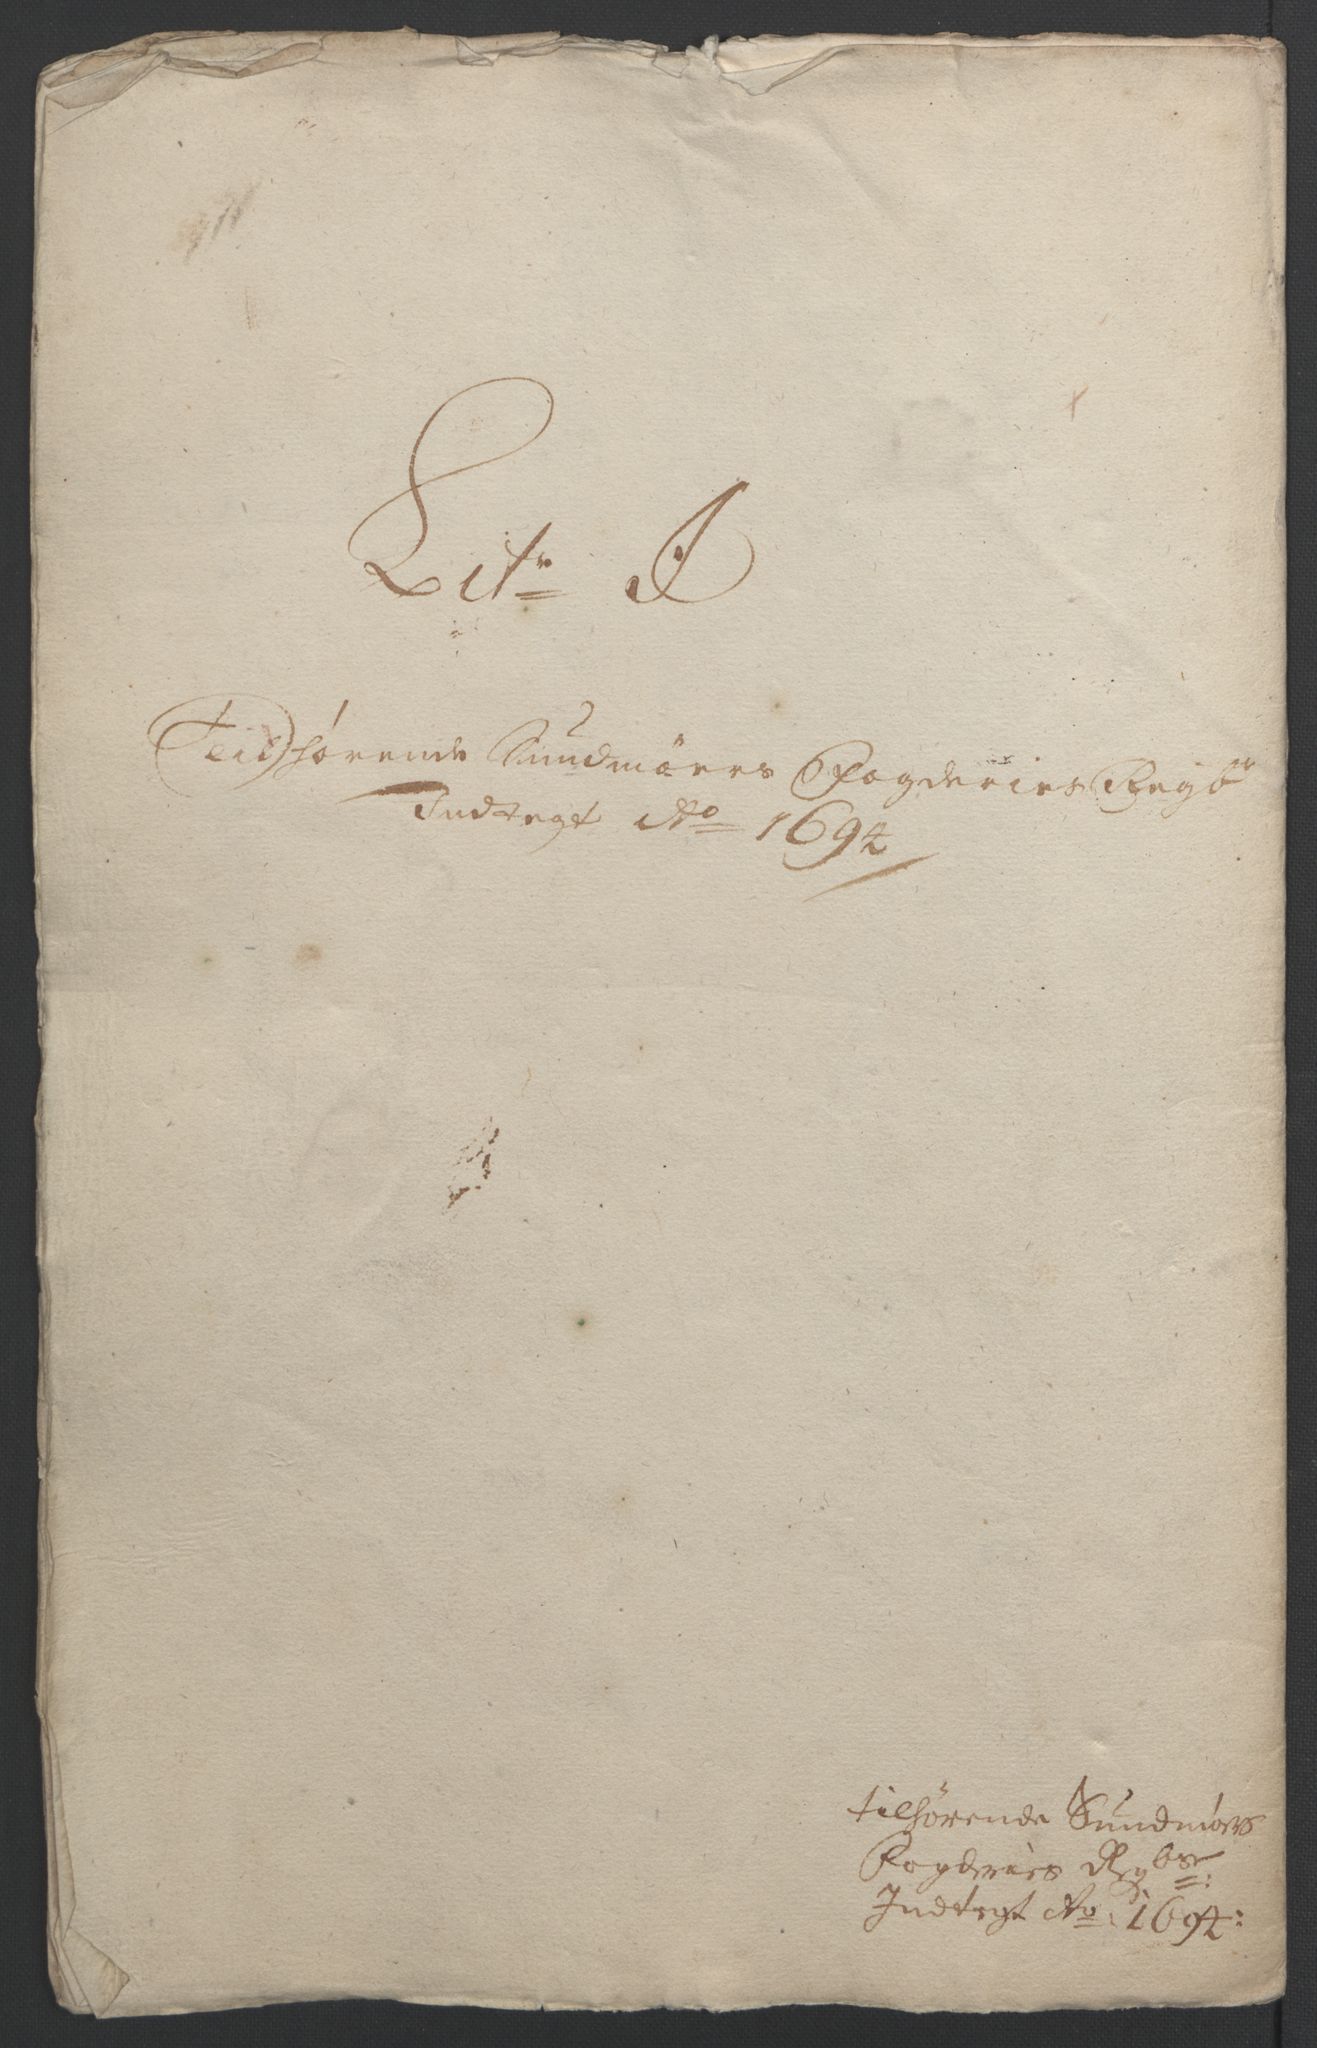 Litr J
Teilhörende Sundmörs Fogderies Regbr
Indtegt Ao 1694
tilhörende Sundmörs
Fogderies Regbr:
Indtegt Ao: 1694: